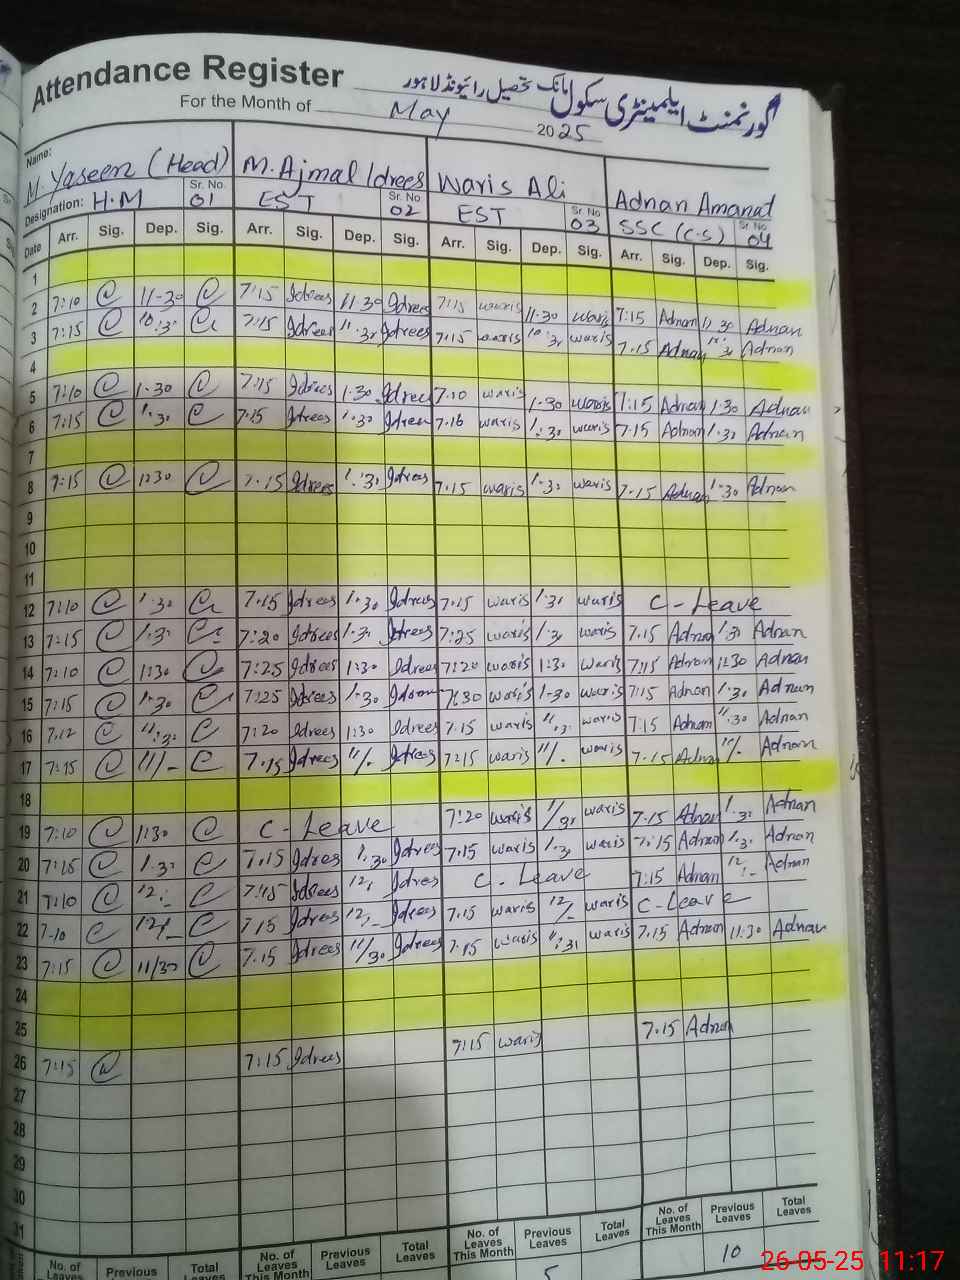 Attendance Register
گورنمنٹ ایلیمینٹری سکول مانک تحصیل رائیونڈ لاہور
For the Month of May 2025
Name: M. Yaseen (Head) M. Ajmal Idrees Waris Ali Adnan Amanat
Designation: H.M Sr. No. 01 EST Sr. No 02 EST Sr. No 03 SSC (C.S) Sr. No 04
Date Arr. Sig. Dep. Sig. Arr. Sig. Dep. Sig. Arr. Sig. Dep. Sig. Arr. Sig. Dep. Sig.
1
2 7:10 11-30 7:15 Idrees 11.30 Idrees 7:15 waris 11.30 waris 7:15 Adnan 11.30 Adnan
3 7:15 10:30 7:15 Idrees Idrees 7.15 waris waris 7.15 Adnan Adnan
4
5 7:10 1.30 7:15 Idrees 1.30 Idrees 7.10 waris 1.30 waris 7:15 Adnan 1:30 Adnan
6 7:15 1:30 7:15 Idrees 1:30 Idrees 7.16 waris 1:30 waris 7.15 Adnan 1.30 Adnan
7
8 7:15 1:30 7.15 Idrees 1:30 Idrees 7.15 waris 1.30 waris 7.15 Adnan 1.30 Adnan
9
10
11
12 7:10 1.30 7.15 Idrees 1.30 Idrees 7.15 waris 1.30 waris C-Leave
13 7:15 1.30 7:20 Idrees 1.30 Idrees 7:25 waris 1.30 waris 7.15 Adnan 1.30 Adnan
14 7:10 1:30 7:25 Idrees 1:30 Idrees 7:20 waris 1:30 waris 7:15 Adnan 1:30 Adnan
15 7:15 1.30 7:25 Idrees 1.30 7:30 waris 1-30 waris 7:15 Adnan 1.30 Adnan
16 7.12 11:30 7:20 Idrees 1:30 Idrees 7.15 waris 11.30 waris 7.15 Adnan 11.30 Adnan
17 7:15 11/- 7.15 Idrees 11/- Idrees 7:15 waris 11/- waris 7.15 Adnan 11/- Adnan
18
19 7:10 1:30 C-Leave 7:20 waris 1/30 waris 7.15 Adnan 1.30 Adnan
20 7:15 1.30 7.15 Idrees 1.30 Idrees 7.15 waris 1.30 waris 7:15 Adnan 1.30 Adnan
21 7:10 12:- 7:15 Idrees 12/ Idrees C-Leave 7:15 Adnan 12/- Adnan
22 7-10 12/- 7.15 Idrees 12/- Idrees 7.15 waris 12/- waris C-Leave
23 7:15 11/30 7.15 Idrees 11/30 Idrees 7.15 waris 11:31 waris 7.15 Adnan 11:30 Adnan
24
25
26 7:15 7:15 Idrees 7:15 waris 7.15 Adnan
27
28
29
30
31
No. of Leaves Previous Total No. of Leaves Previous Leaves Total Leaves No. of Leaves This Month Previous Leaves Total Leaves No. of Leaves This Month Previous Leaves Total Leaves
5 10
26-05-25 11:17